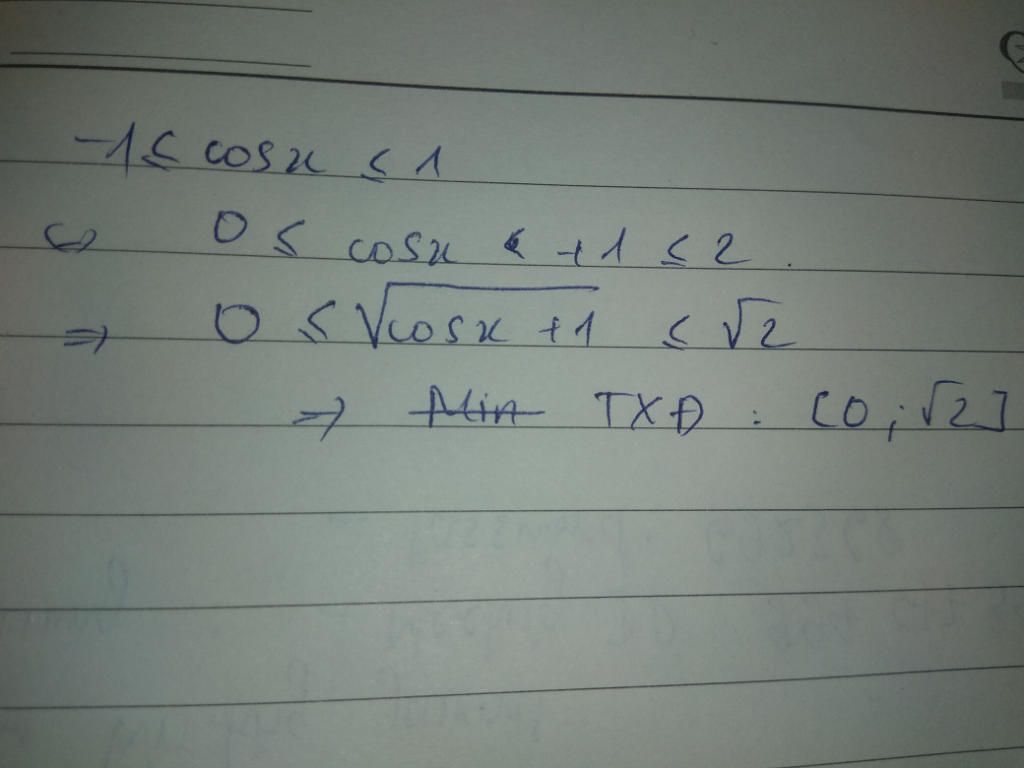 -1 ≤ cosx ≤ 1
⇔ 0 ≤ cosx + 1 ≤ 2.
⇒ 0 ≤ √(cosx + 1) ≤ √2
⇒ Min TXĐ : [0; √2]